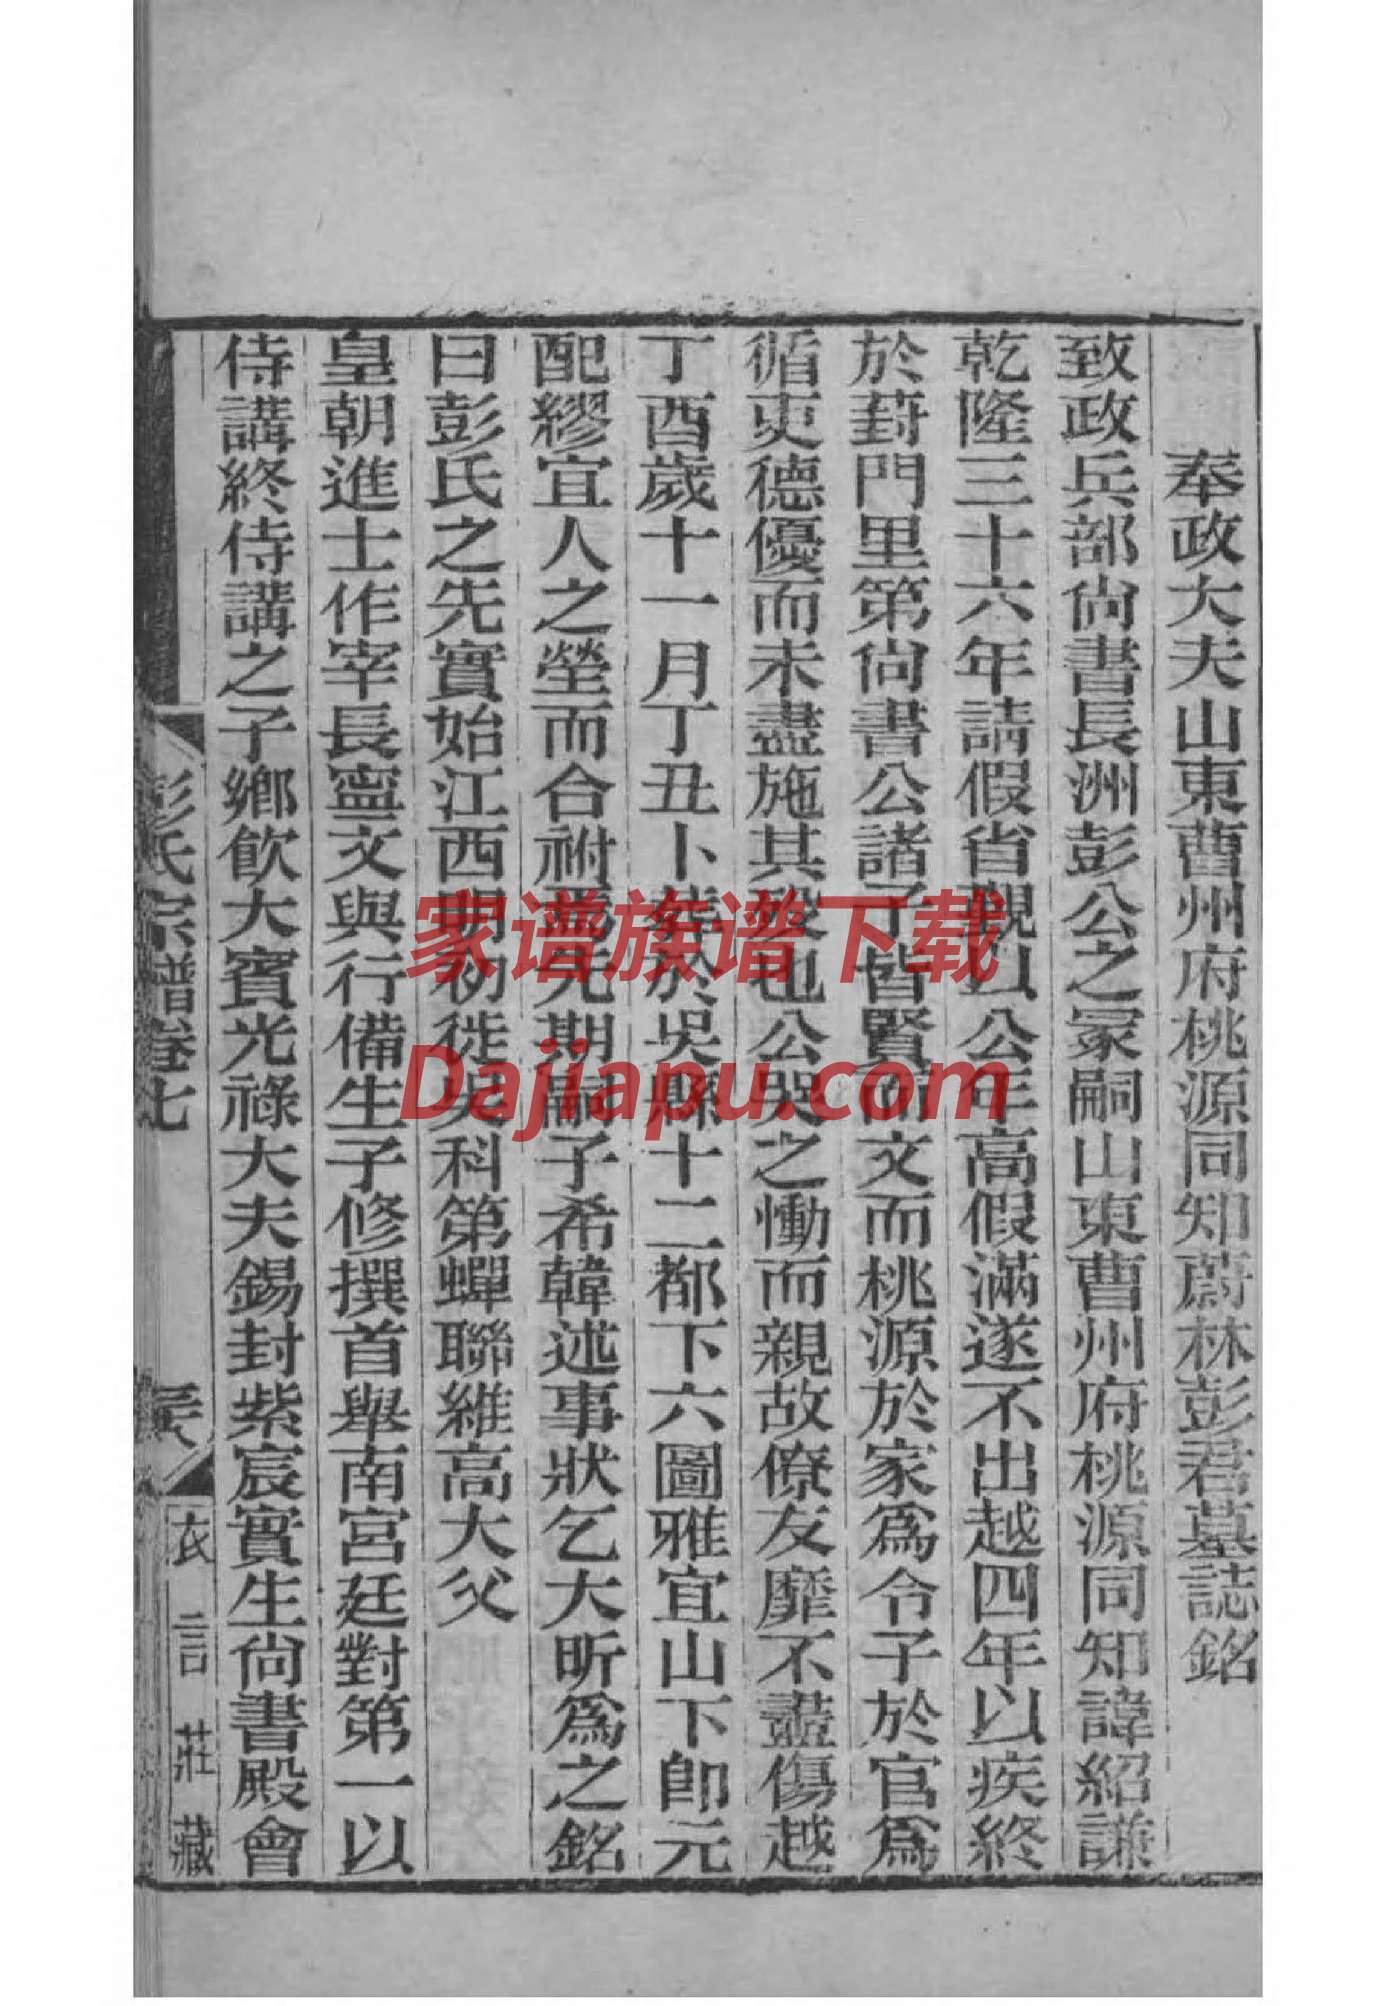 奉政大夫山東曹州府桃源同知蔚林彭君墓誌銘
致政兵部尙書長洲彭公之冢嗣山東曹州府桃源同知諱紹謙
乾隆三十六年請假省親以公年高假滿遂不出越四年以疾終
於葑門里第尙書公諸子皆賢而文而桃源於家爲令子於官爲
循吏德優而未盡施其歿也公哭之慟而親故僚友靡不盡傷越
丁酉歲十一月丁丑卜葬於吳縣十二都下六圖雅宜山下卽元
配繆宜人之塋而合祔焉先期嗣子希韓述事狀乞大昕爲之銘
曰彭氏之先實始江西明初徙吳科第蟬聯維高大父
皇朝進士作宰長寧文與行備生子修撰首舉南宮廷對第一以
侍講終侍講之子鄉飮大賓光祿大夫錫封紫宸實生尙書殿會
彭氏宗譜卷七
衣言莊藏
家谱族谱下载
Dajiapu.com